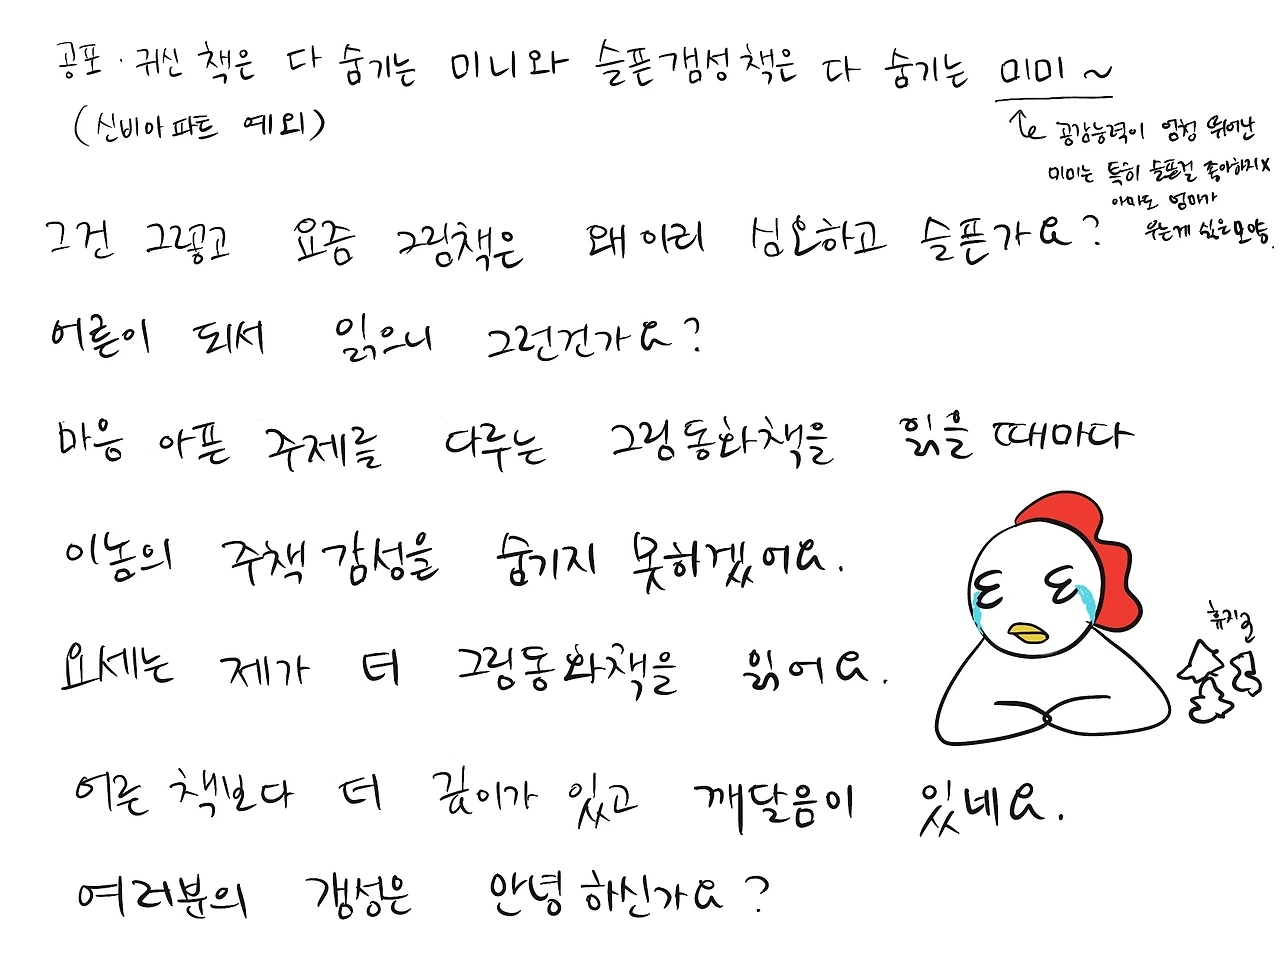 공포·귀신 책은 다 숨기는 미니와 슬픈갬성책은 다 숨기는 미미~
(신비아파트 예외)
공감능력이 엄청 뛰어난
미미는 특히 슬픈걸 좋아하지X
아마도 엄마가
우는게 싫은모양.
그건 그렇고 요즘 그림책은 왜이리 심오하고 슬픈가요?
어른이 되서 읽으니 그런건가요?
마음 아픈 주제를 다루는 그림동화책을 읽을때마다
이놈의 주책감성을 숨기지 못하겠어요.
요세는 제가 더 그림동화책을 읽어요.
휴지군
어른책보다 더 깊이가 있고 깨달음이 있네요.
여러분의 갬성은 안녕하신가요?